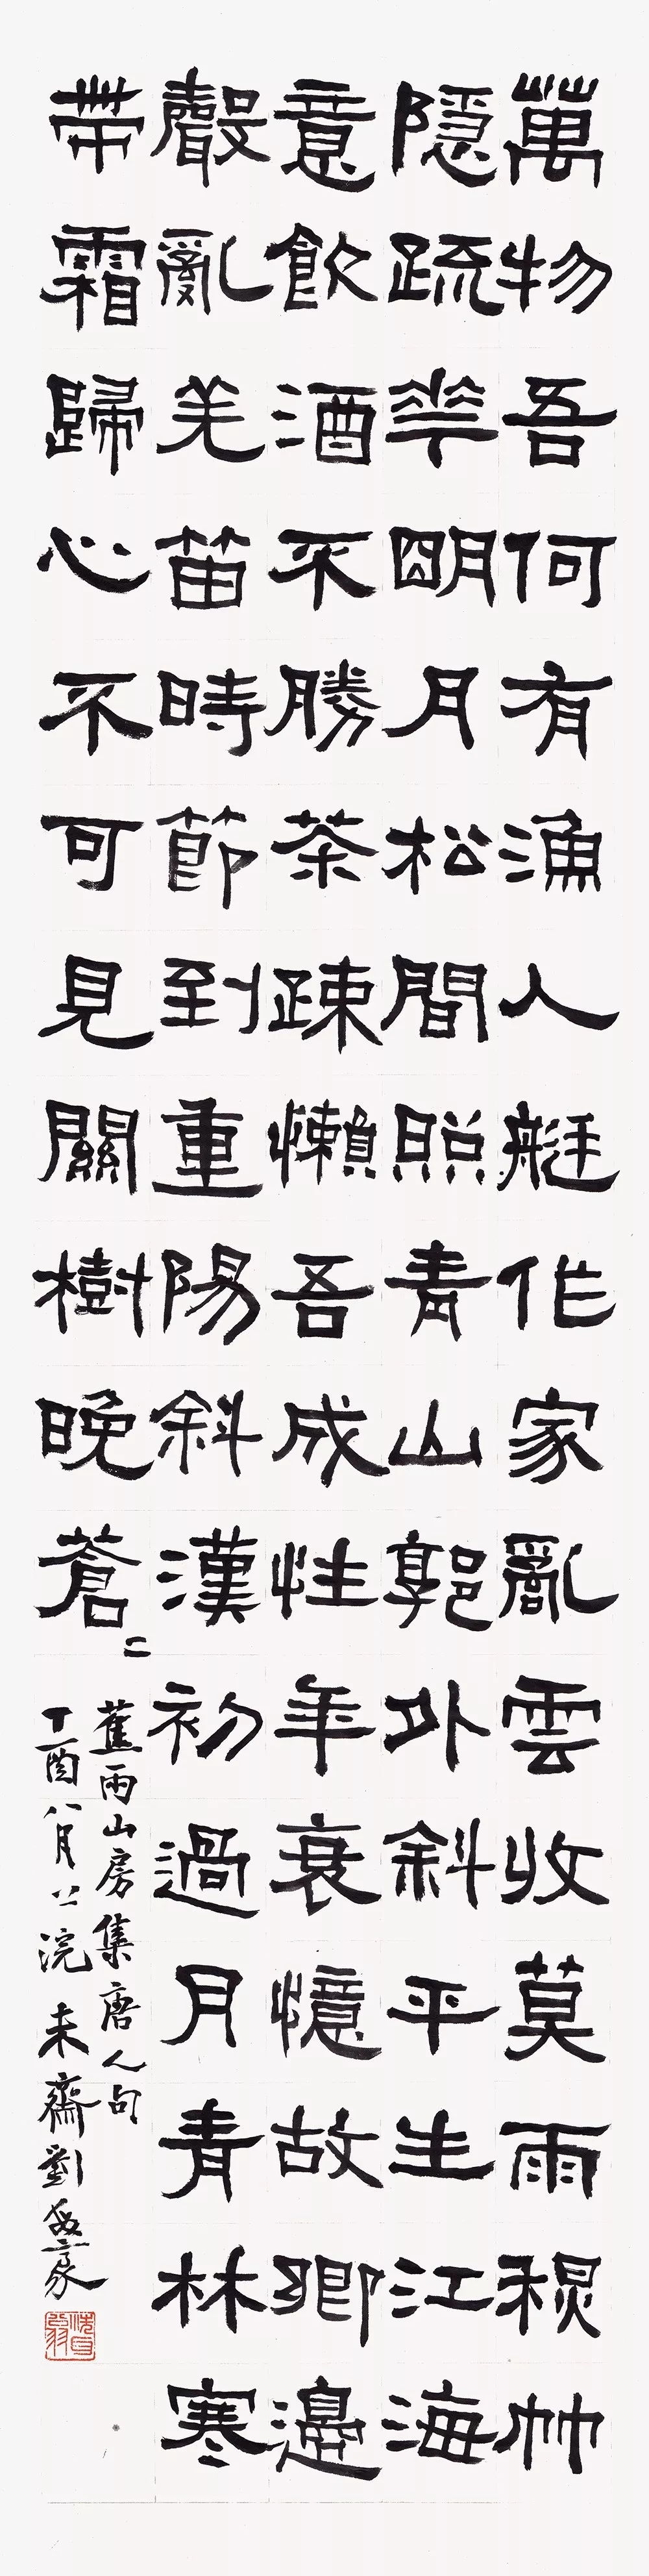 萬物吾何有漁人艇作家亂雲收莫雨竹
隱疏華明月松間照青山郭外斜平生江海
意飲酒不勝茶疎懶吾成性年衰憶故鄉邊
聲亂羌笛時節到重陽斜漢初過月青林寒
帶霜歸心不可見關樹晚蒼〻
蕉雨山房集唐人句
丁酉八月上浣未齋劉